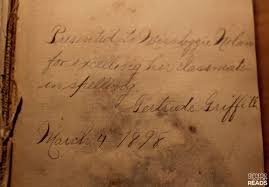 Presented to Miss Nolan
for excelling her classmates
in spelling.
Gertrude Griffith
March 4 1898
READS